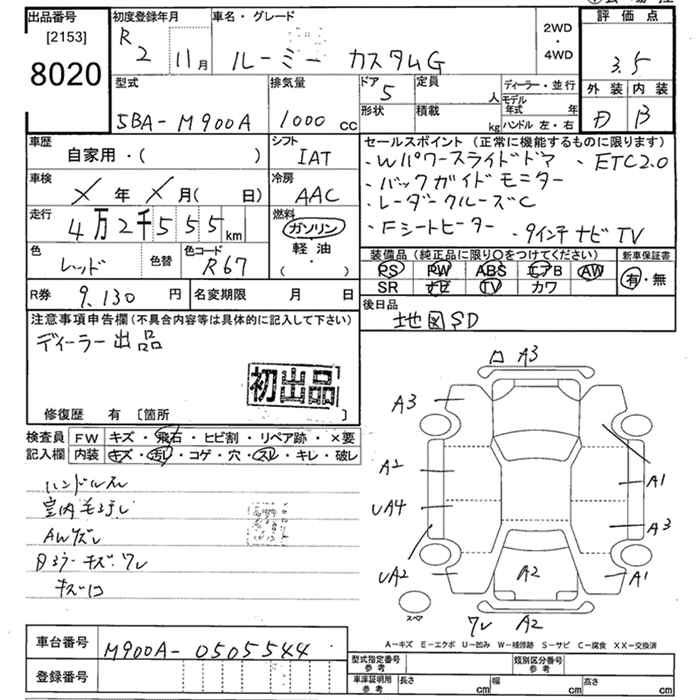 出品番号
[2153]
8020
初度登録年月
R 2 11月
車名・グレード
ルーミー カスタムG
2WD・4WD
評価点
3.5
外装 内装
D B
型式
5BA-M900A
排気量
1000cc
ドア
5
形状
定員
人
積載
kg
ディーラー・並行
モデル年式 年
ハンドル 左・右
車歴
自家用・( )
シフト
IAT
車検
X年X月( 日)
冷房
AAC
走行
4万2千555km
燃料
ガソリン
軽油
・
( )
色
レッド
色替
色コード
R67
R券
9,130円
名変期限 月 日
セールスポイント(正常に機能するものに限ります)
・Wパワースライドドア ・ETC2.0
・バックガイドモニター
・レーダークルーズC
・Fシートヒーター ・9インチナビTV
装備品(純正品に限り○をつけてください)
PS PW ABS エアB AW
SR ナビ TV カワ
新車保証書
有・無
後日品
地図SD
注意事項申告欄(不具合内容等は具体的に記入して下さい)
ディーラー出品
初出品
修復歴 有 [箇所 ]
検査員記入欄
FW キズ・飛石・ヒビ割・リペア跡・×要
内装 キズ・汚レ・コゲ・穴・スレ・キレ・破レ
ハンドルスレ
室内モヨゴレ
AWズレ
キズ凹
A3
A3
A2
UA4
UA2
A1
A3
A1
A2
ワレ A2
スペア
A-キズ E-エクボ U-凹み W-補修跡 S-サビ C-腐食 XX-交換済
車台番号
M900A-0505544
登録番号
型式指定番号 参考
類別区分番号 参考
車庫証明用 参考
長さ cm
幅 cm
高さ cm